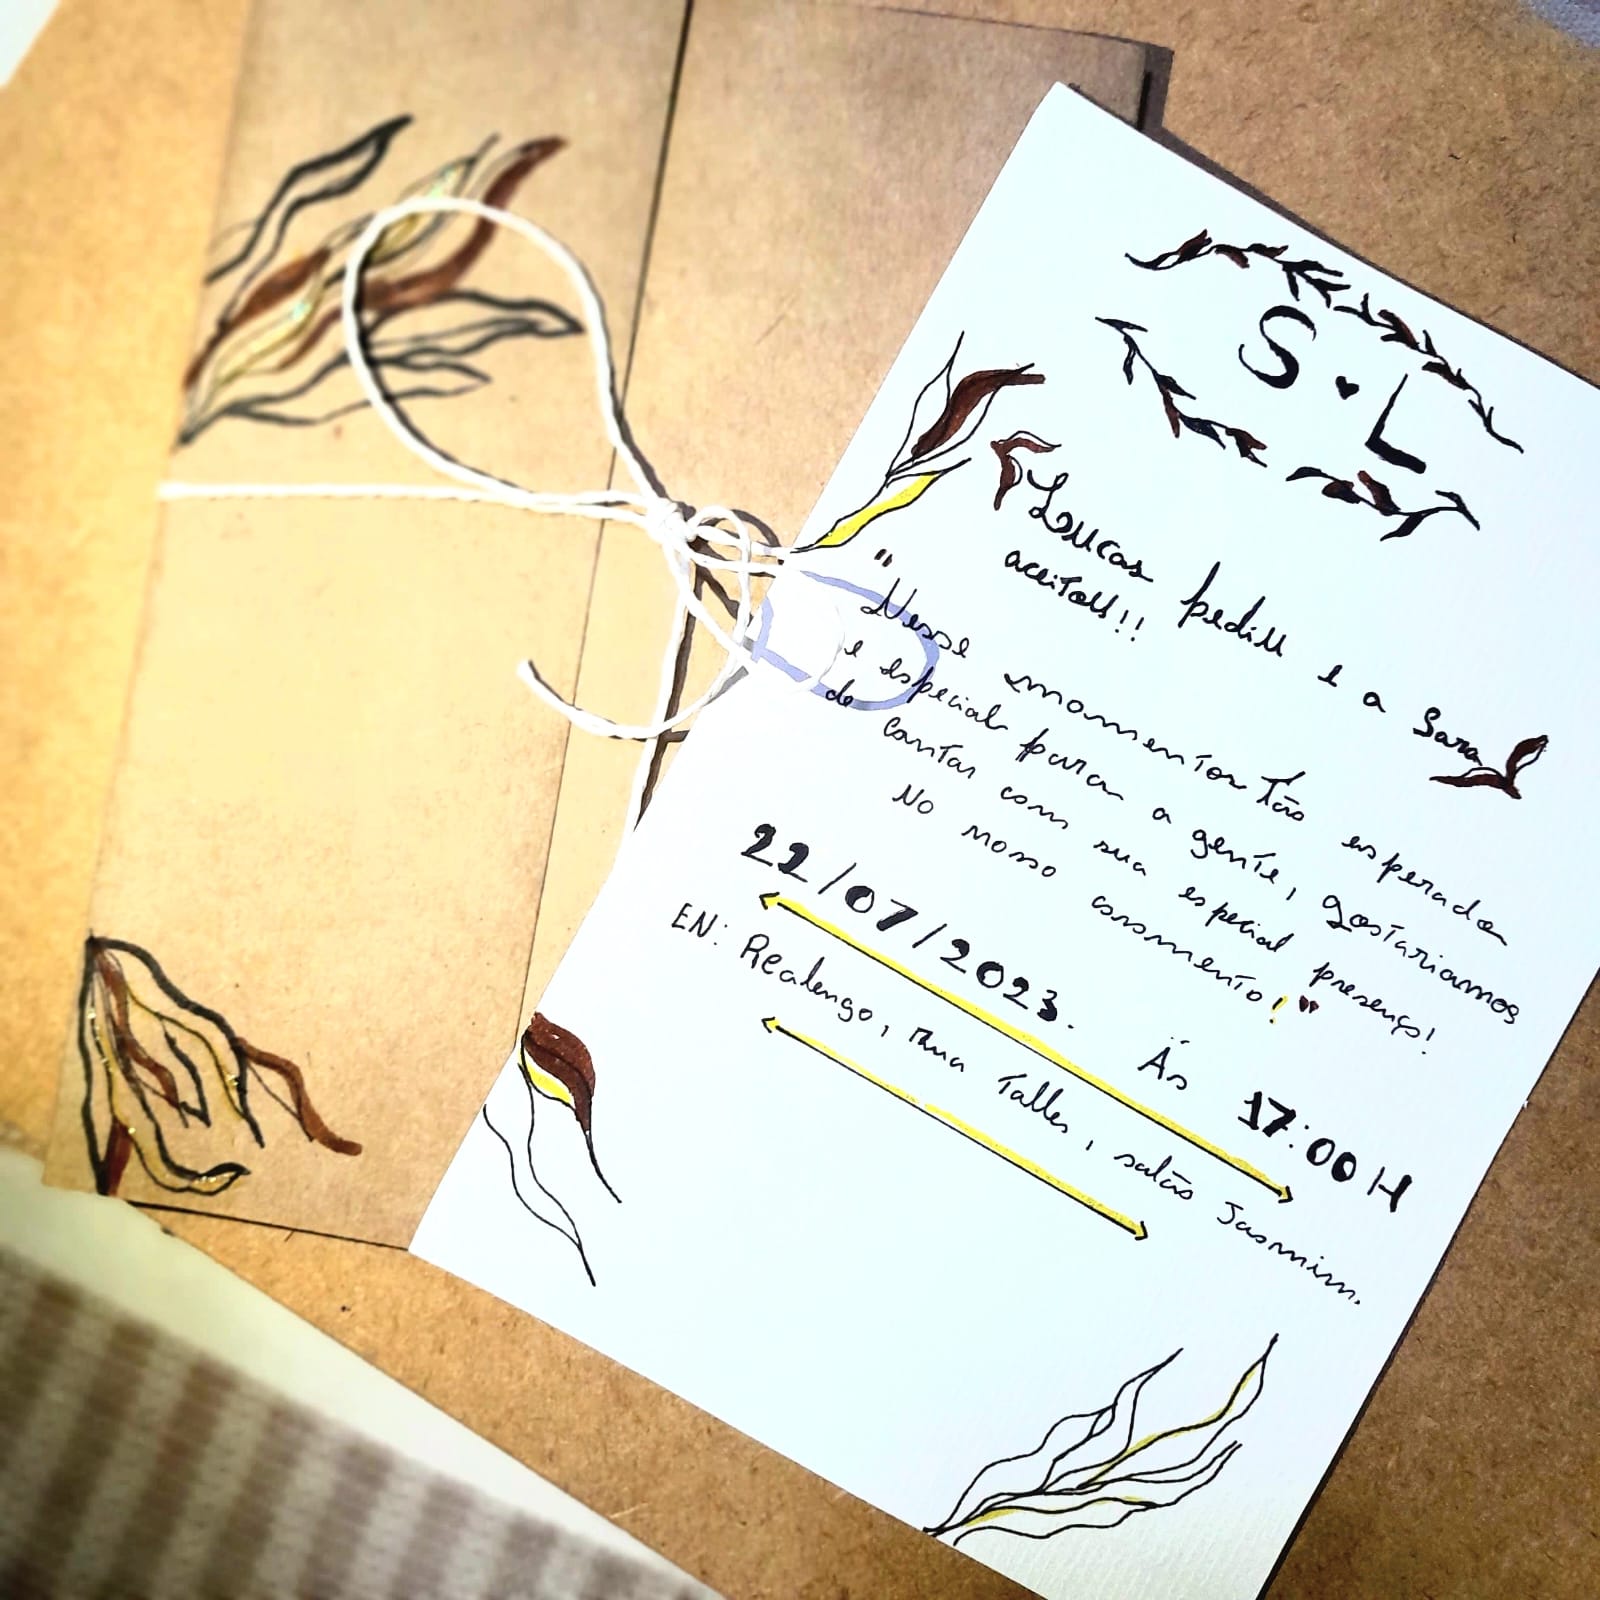 S ♥ L
Loucas pediu e a Sara
aceitou!!
"Nesse momentos tão esperado
e especial para a gente, gostariamos
de contar com sua especial presença!
No nosso casamento! ♥
22/07/2023. Äs 17:00H
EN: Realengo, rua Talles, salão Jasmim.